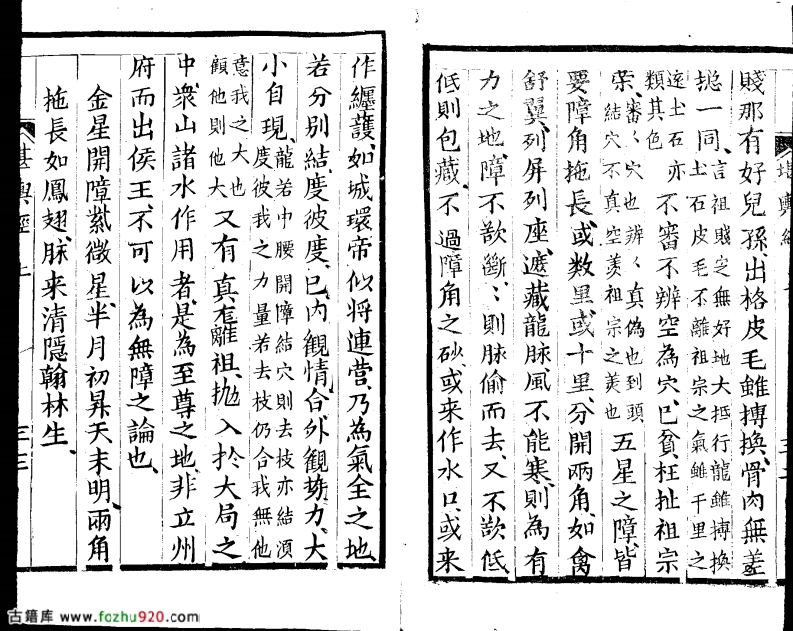 賤那有好兒孫、出格皮毛雖摶換、骨肉無差
總一同、言祖賤定無好地大抵行龍雖摶換土石皮毛不離祖宗之氣雖千里之
遠土石亦類其色不審不辨空為穴、已貧、枉扯祖宗
荣、審く穴也辨く真偽也到頭結穴不真空羡祖宗之美也五星之障皆
要障角拖長、或数里或十里、分開兩角、如禽
舒翼、列屏列座、遮藏龍脉、風不能寒、則為有
力之地、障不㰱斷、斷則脉偷而去、又不㰱低
低則包藏、不過障角之砂、或來作水口、或来
作纏護、如城環帝似将連营、乃為氣全之地
若分别結、度彼度、已内觀情、合外觀势力、大
小自現、龍若中腰開障結穴則去枝亦結湏度彼我之力量若去枝仍合我無他
意我之大也顧他則他大又有真龙離祖、抛入扵大局之
中、衆山諸水作用者、是為至尊之地、非立州
府而出侯王、不可以為無障之論也、
金星開障紫微星、半月初昇天未明、兩角
拖長如鳳翅、脉来清隱翰林生、
堪輿經 上
三二
堪輿經 上
三三
古籍库 www.fozhu920.com